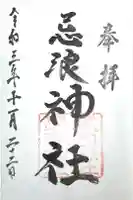 奉拝
忌浪神社
令和三年十一月二十二日